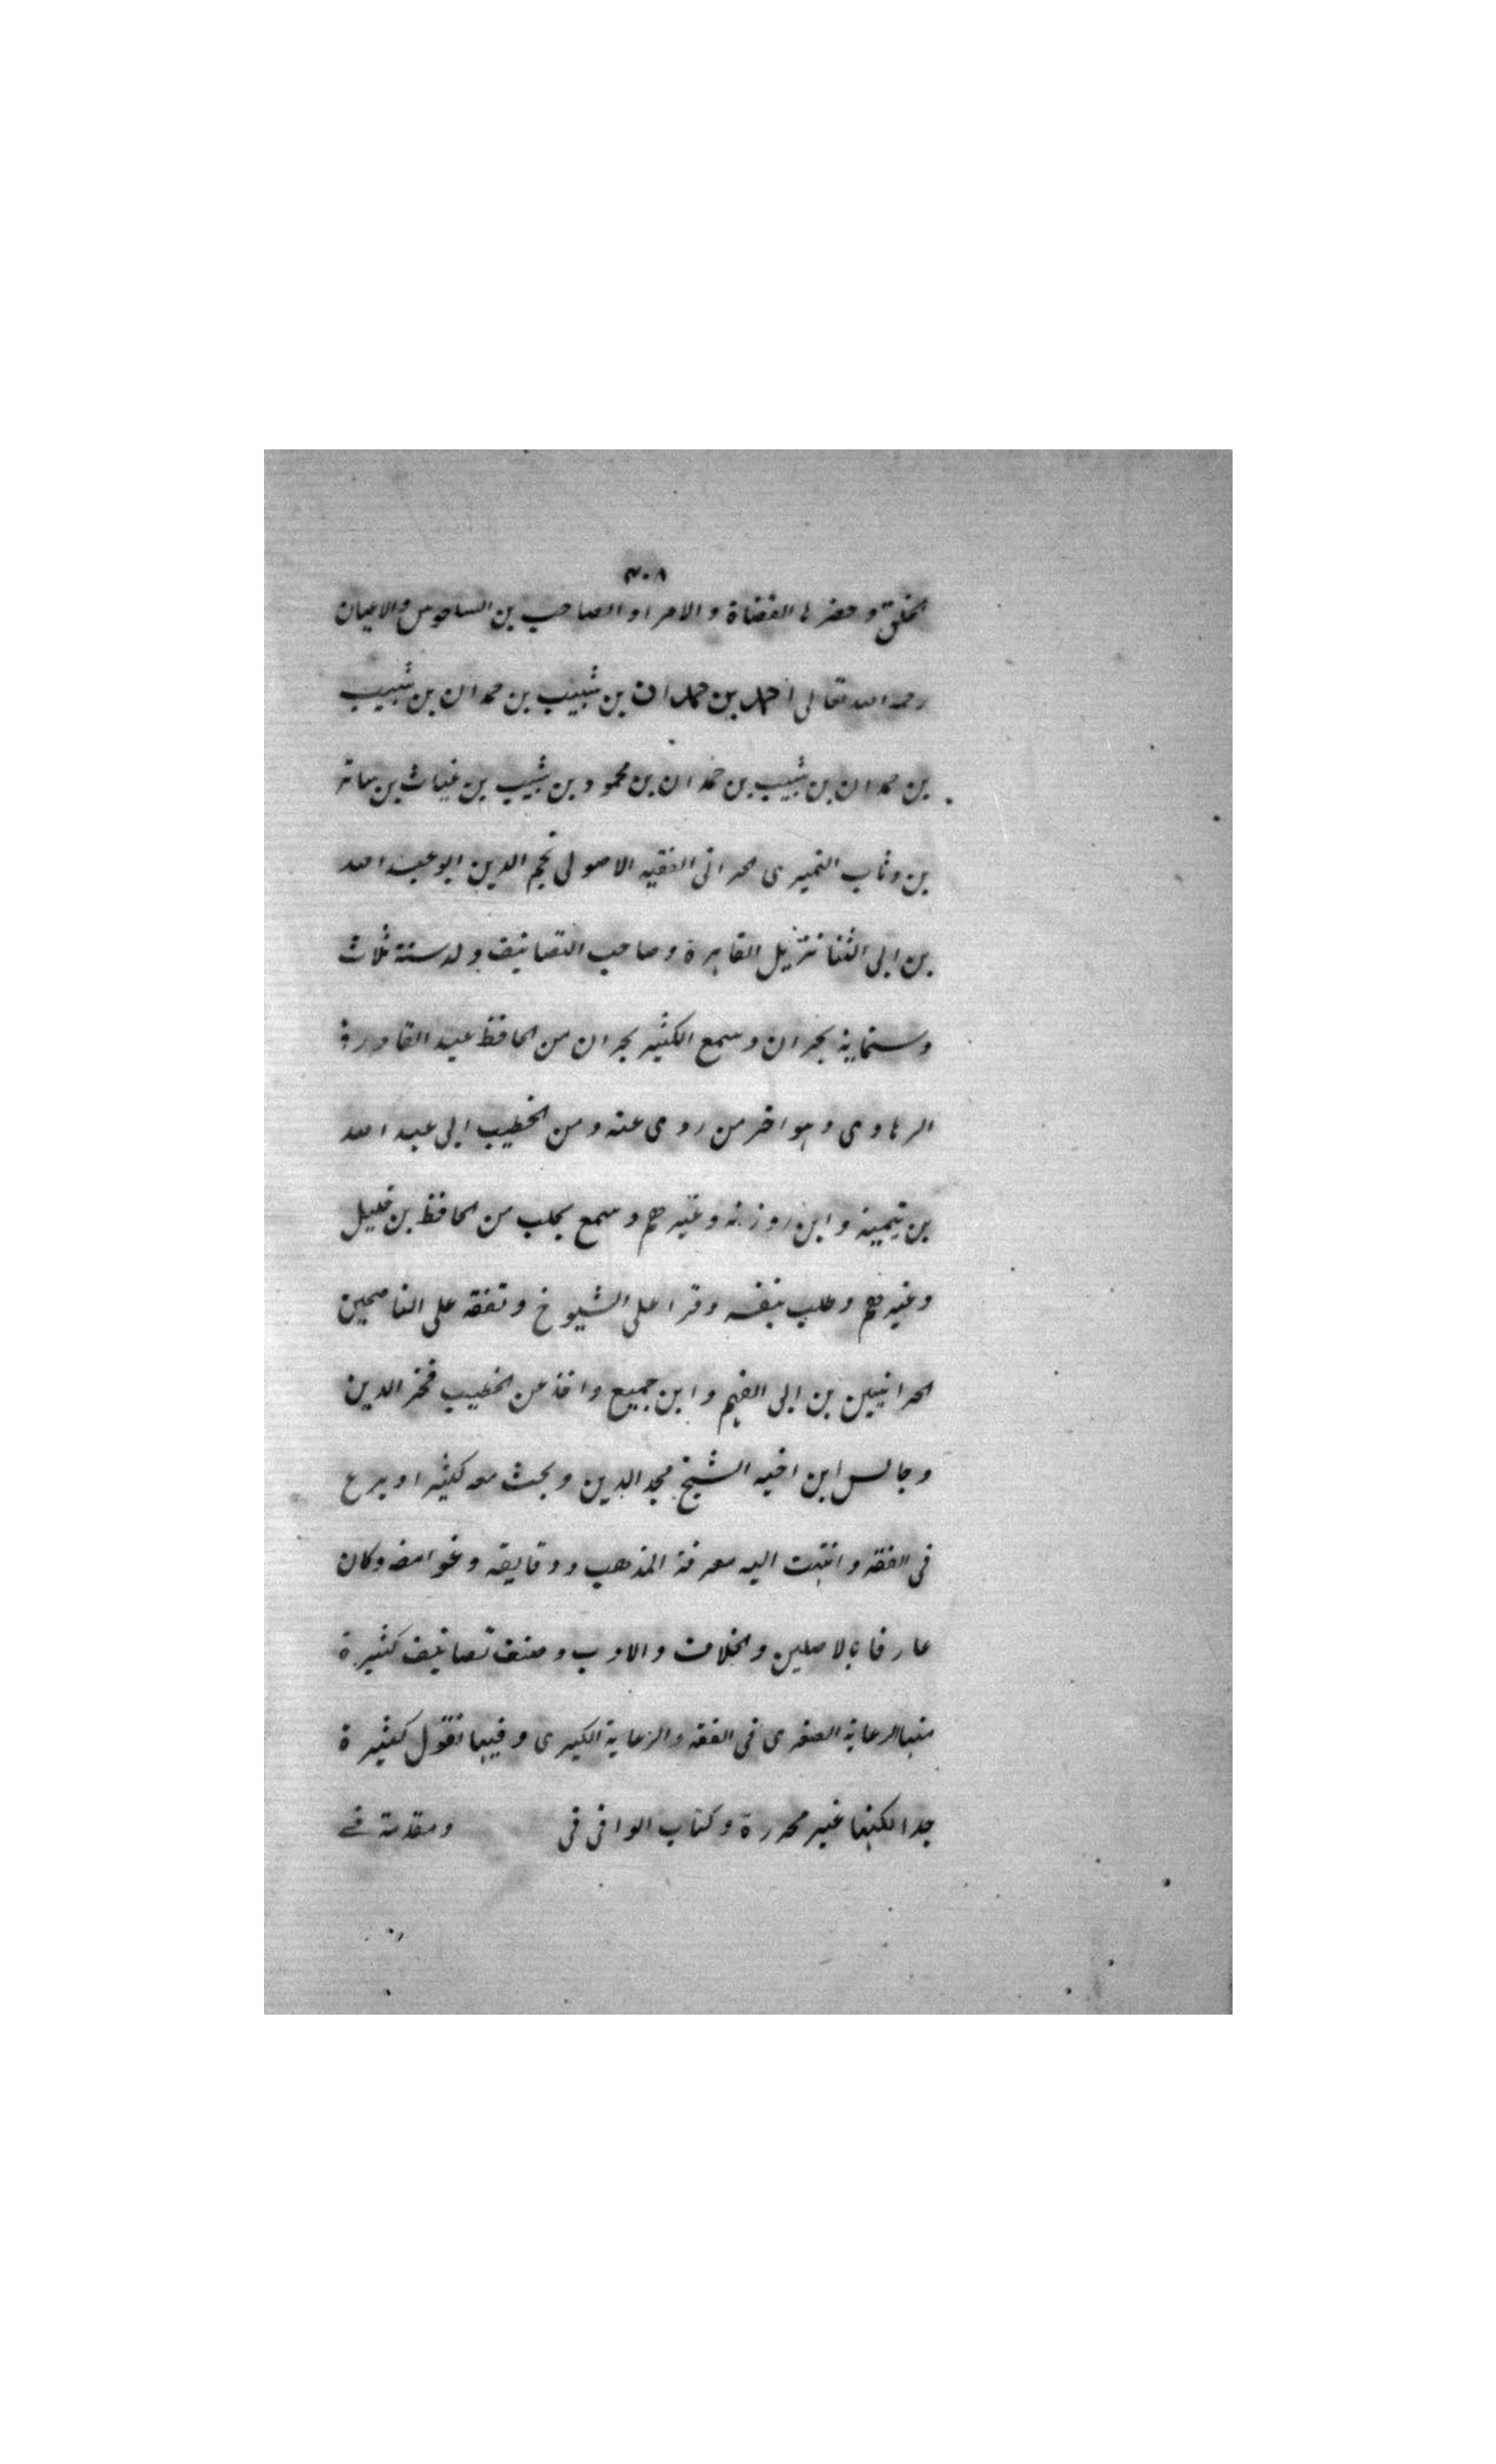 ٣٠٨
الخلق وحضرها القضاة والامرا والصاحب بن السلعوس والاعيان
رحمه الله تعالى احمد بن حمدان بن شبيب بن حمدان بن شبيب
بن حمدان بن شبيب بن حمدان بن محمود بن شبيب بن غياث بن سابق
بن وثاب النميرى الحرانى الفقيه الاصولى نجم الدين ابو عبد الله
بن ابى الثنا نزيل القاهرة وصاحب التصانيف ولد سنة ثلاث
وستماية بحران وسمع الكثير بحران من الحافظ عبد القادر
الرهاوى وهو اخر من روى عنه ومن الخطيب ابى عبد الله
بن تيمية وابن روزبه وغيرهم وسمع بحلب من الحافظ بن خليل
وغيرهم وطلب بنفسه وقرا على الشيوخ وتفقه على الناصحين
الحرانيين بن ابى الفهم وابن جميع واخذ عن الخطيب فخر الدين
وجالس ابن اخيه الشيخ مجد الدين وبحث معه كثيرا وبرع
فى الفقه وانتهت اليه معرفة المذهب ودقايقه وغوامضه وكان
عارفا بالاصلين والخلاف والادب وصنف تصانيف كثيرة
منها الرعاية الصغرى فى الفقه والرعاية الكبرى وفيها نقول كثيرة
جدا لكنها غير محررة وكتاب الوافى فى ومقدمة فے